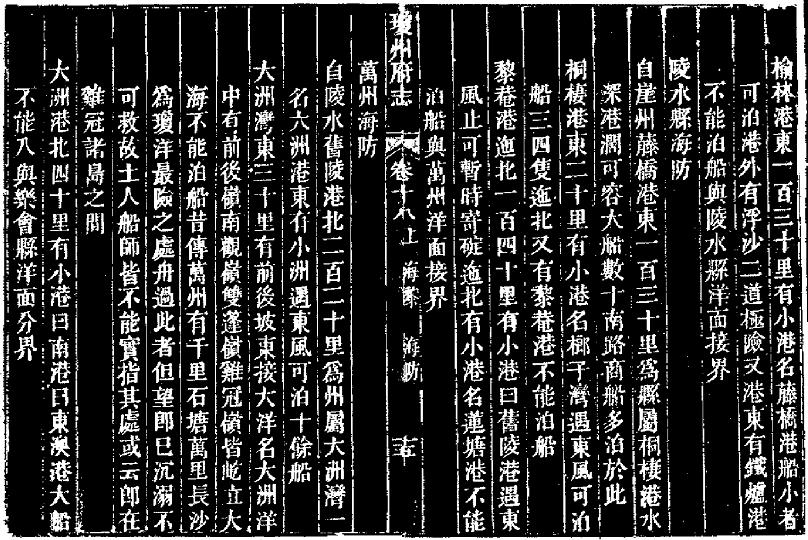 榆林港東一百三十里有小港名藤橋港船小者
可泊港外有浮沙二道極險又港東有鐵爐港
不能泊船與陵水縣洋面接界
陵水縣海防
自崖州藤橋港東一百三十里爲縣屬桐棲港水
深港濶可容大船數十南路商船多泊於此
桐棲港東二十里有小港名椰子灣遇東風可泊
船三四隻迤北又有黎菴港不能泊船
黎菴港迤北一百四十里有小港曰舊陵港遇東
風止可暫時寄椗迤北有小港名蓮塘港不能
泊船與萬州洋面接界
瓊州府志 卷十八上 海黎 海防 十五
萬州海防
自陵水舊陵港北二百二十里爲州屬大洲灣一
名大洲港東有小洲遇東風可泊十餘船
大洲灣東三十里有前後坡東接大洋名大洲洋
中有前後嶺南觀嶺雙蓬嶺雞冠嶺皆屹立大
海不能泊船昔傳萬州有千里石塘萬里長沙
爲瓊洋最險之處舟過此者但望卽已沉溺不
可救故土人船師皆不能實指其處或云卽在
雞冠諸島之間
大洲港北四十里有小港曰南港曰東澳港大船
不能入與樂會縣洋面分界